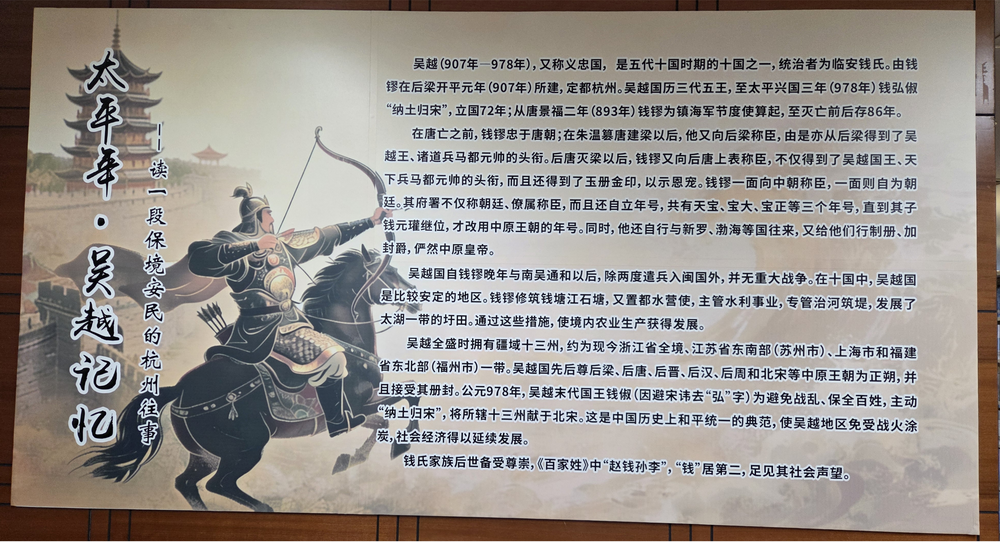 太平年·吴越记忆
——读一段保境安民的杭州往事
吴越（907年—978年），又称义忠国， 是五代十国时期的十国之一，统治者为临安钱氏。由钱
镠在后梁开平元年（907年）所建，定都杭州。吴越国历三代五王，至太平兴国三年（978年）钱弘俶
“纳土归宋”，立国72年；从唐景福二年（893年）钱镠为镇海军节度使算起，至灭亡前后存86年。
在唐亡之前，钱镠忠于唐朝；在朱温篡唐建梁以后，他又向后梁称臣，由是亦从后梁得到了吴
越王、诸道兵马都元帅的头衔。后唐灭梁以后，钱镠又向后唐上表称臣，不仅得到了吴越国王、天
下兵马都元帅的头衔，而且还得到了玉册金印，以示恩宠。钱镠一面向中朝称臣，一面则自为朝
廷。其府署不仅称朝廷、僚属称臣，而且还自立年号，共有天宝、宝大、宝正等三个年号，直到其子
钱元瓘继位，才改用中原王朝的年号。同时，他还自行与新罗、渤海等国往来，又给他们行制册、加
封爵，俨然中原皇帝。
吴越国自钱镠晚年与南吴通和以后，除两度遣兵入闽国外，并无重大战争。在十国中，吴越国
是比较安定的地区。钱镠修筑钱塘江石塘，又置都水营使，主管水利事业，专管治河筑堤，发展了
太湖一带的圩田。通过这些措施，使境内农业生产获得发展。
吴越全盛时拥有疆域十三州，约为现今浙江省全境、江苏省东南部（苏州市）、上海市和福建
省东北部（福州市）一带。吴越国先后尊后梁、后唐、后晋、后汉、后周和北宋等中原王朝为正朔，并
且接受其册封。公元978年，吴越末代国王钱俶（因避宋讳去“弘”字）为避免战乱、保全百姓，主动
“纳土归宋”，将所辖十三州献于北宋。这是中国历史上和平统一的典范，使吴越地区免受战火涂
炭，社会经济得以延续发展。
钱氏家族后世备受尊崇，《百家姓》中“赵钱孙李”，“钱”居第二，足见其社会声望。